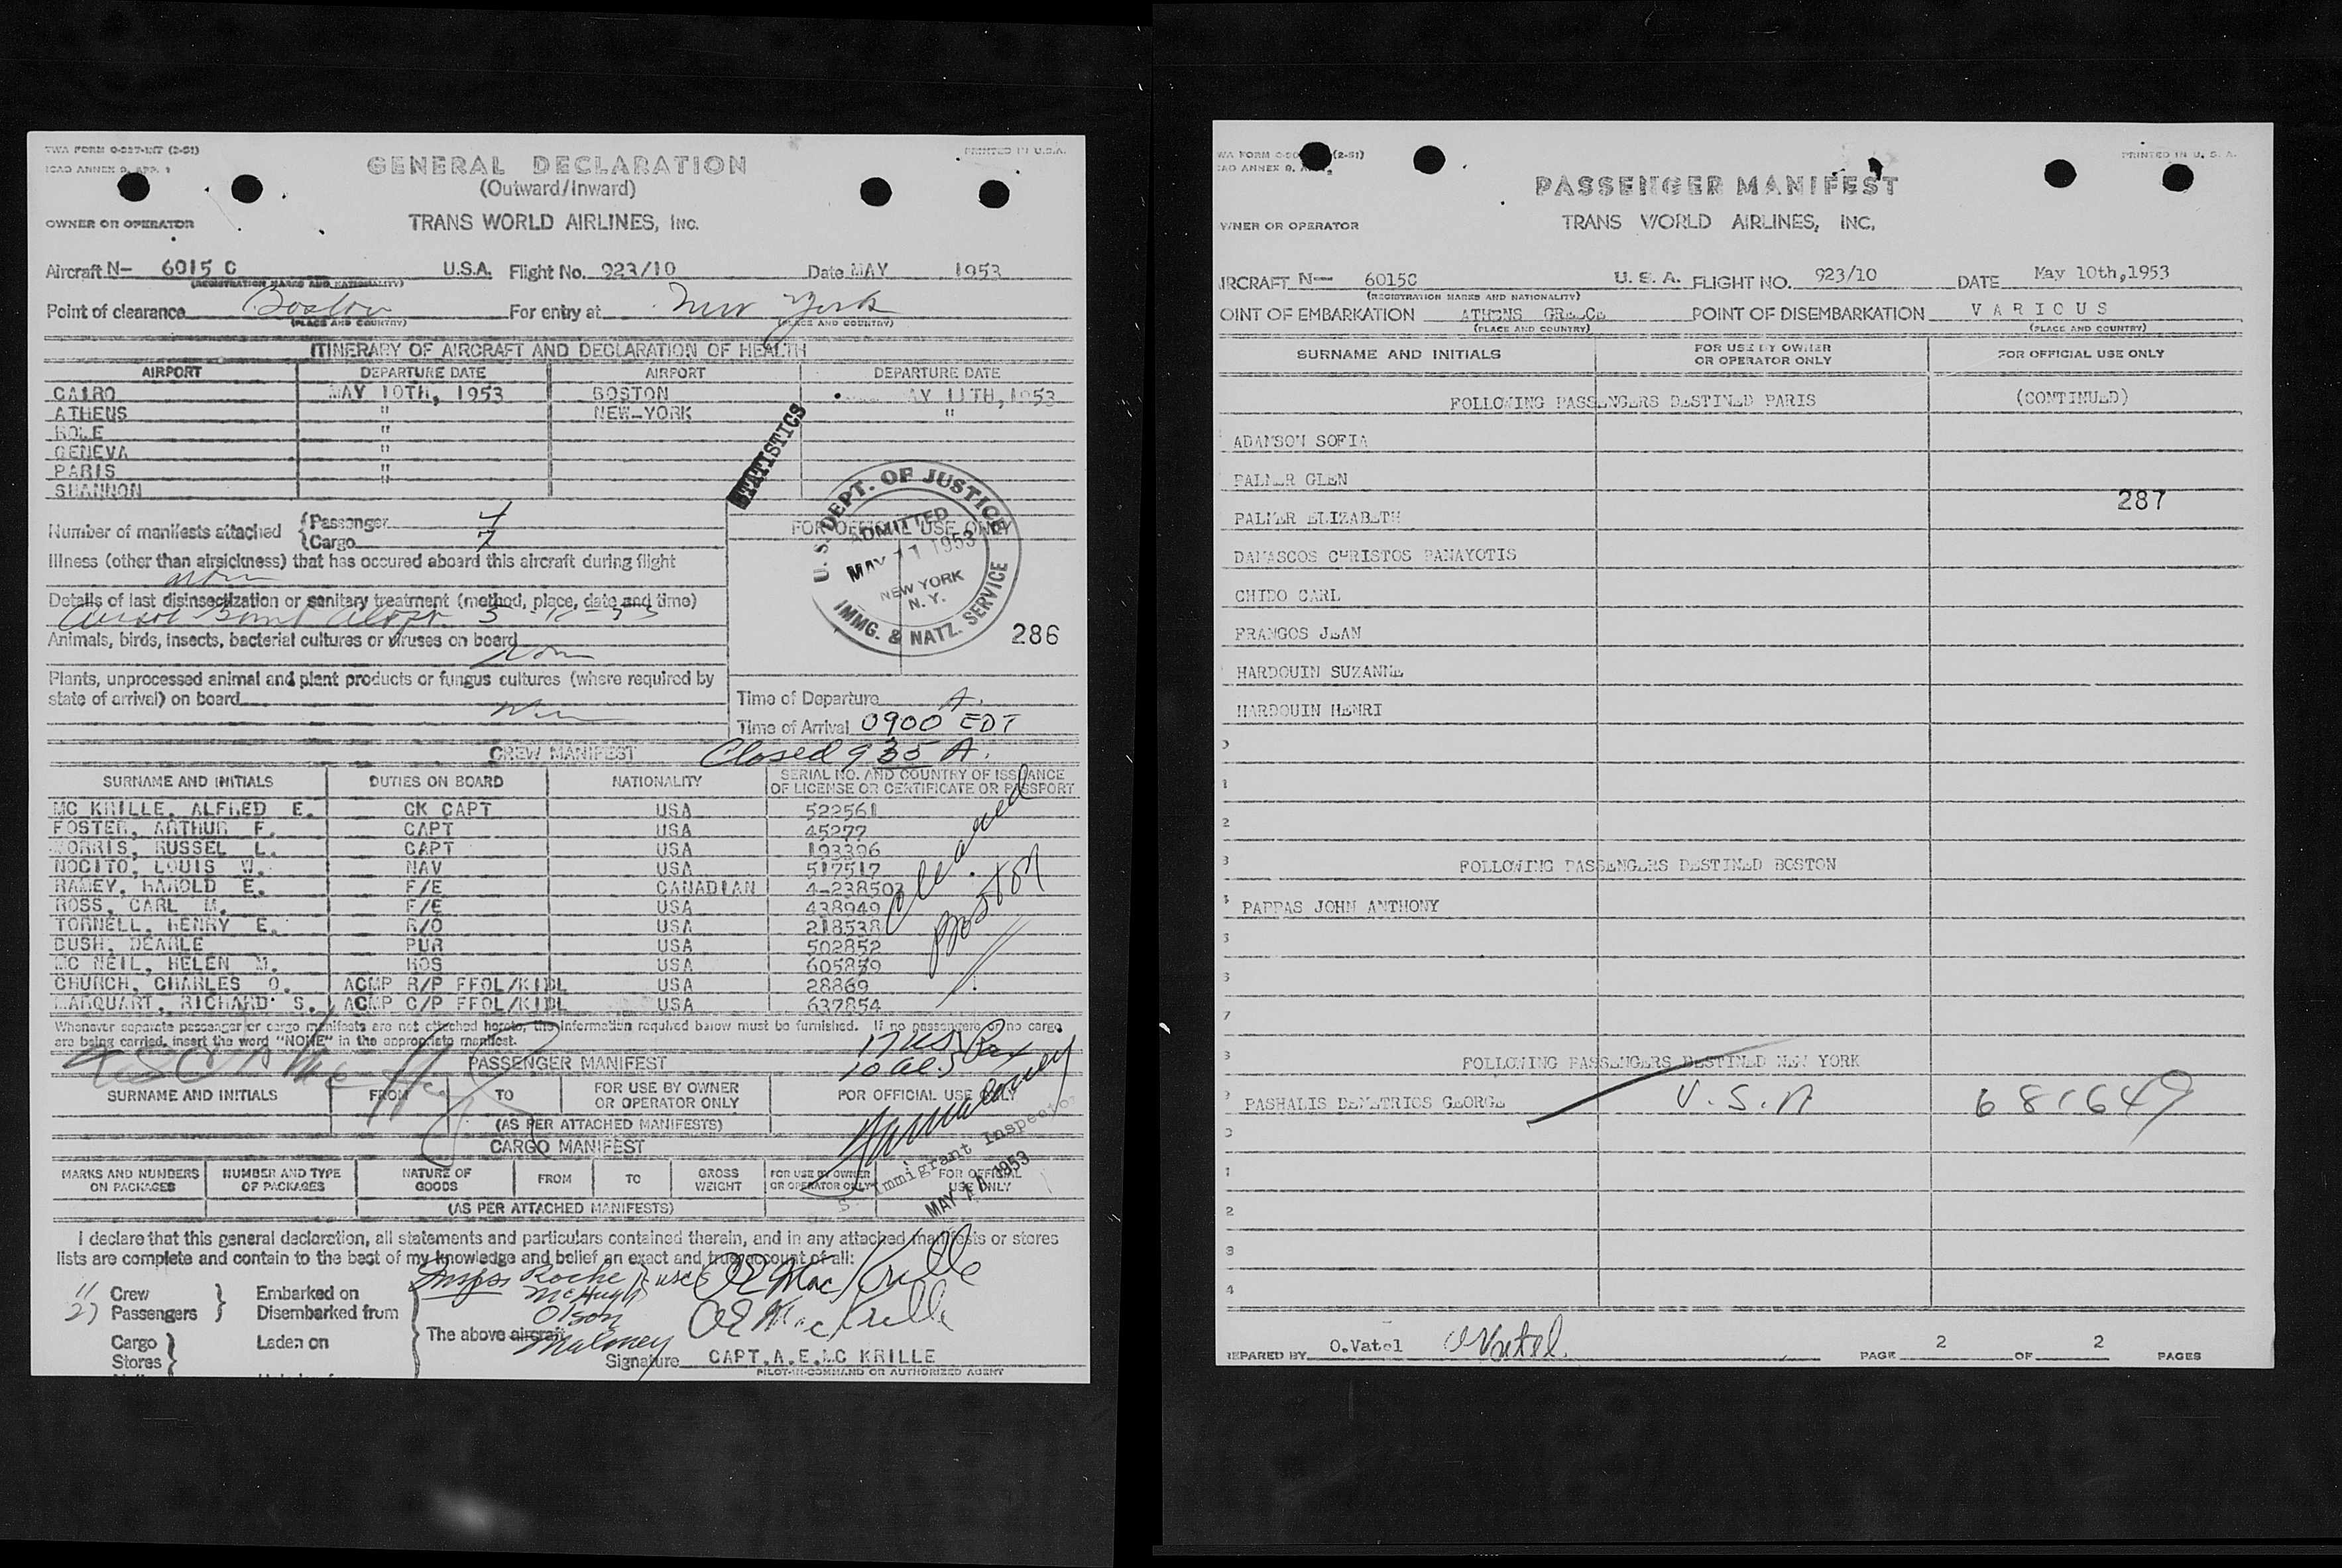 TWA FORM 0-027-INT (2-51)
PRINTED IN U.S.A.
ICAO ANNEX 9, APP. 1
GENERAL DECLARATION
(Outward/Inward)
OWNER OR OPERATOR TRANS WORLD AIRLINES, INC.
Aircraft N- 6015 C U.S.A. Flight No. 923/10 Date MAY 1953
(REGISTRATION MARKS AND NATIONALITY)
Point of clearance Boston For entry at New York
(PLACE AND COUNTRY) (PLACE AND COUNTRY)
ITINERARY OF AIRCRAFT AND DECLARATION OF HEALTH
AIRPORT DEPARTURE DATE AIRPORT DEPARTURE DATE
CAIRO MAY 10TH, 1953 BOSTON AY 11TH, 1953
ATHENS " NEW-YORK "
ROME "
GENEVA "
PARIS "
SHANNON "
STATISTICS
Number of manifests attached {Passenger 4
{Cargo 7
FOR OFFICIAL USE ONLY
U.S. DEPT. OF JUSTICE
ADMITTED
MAY 11 1953
NEW YORK
N.Y.
IMMG. & NATZ. SERVICE
286
Illness (other than airsickness) that has occured aboard this aircraft during flight
none
Details of last disinsectization or sanitary treatment (method, place, date and time)
Animals, birds, insects, bacterial cultures or viruses on board
none
Plants, unprocessed animal and plant products or fungus cultures (where required by
state of arrival) on board
Time of Departure A.
Time of Arrival 0900 EDT
CREW MANIFEST Closed 935 A.
SURNAME AND INITIALS DUTIES ON BOARD NATIONALITY SERIAL NO. AND COUNTRY OF ISSUANCE
OF LICENSE OR CERTIFICATE OR PASSPORT
MC KRILLE, ALFRED E. CK CAPT USA 522561
FOSTER, ARTHUR F. CAPT USA 45277
MORRIS, RUSSEL L. CAPT USA 193396
NOCITO, LOUIS W. NAV USA 517517
RAMEY, HAROLD E. F/E CANADIAN 4-238502
ROSS, CARL M. F/E USA 438949
TORNELL, HENRY E. R/O USA 218538
BUSH, DEARLE PUR USA 502852
MC NEIL, HELEN M. HOS USA 605859
CHURCH, CHARLES O. ACMP R/P FFOL/KIDL USA 28869
MARQUART, RICHARD S. ACMP C/P FFOL/KIDL USA 637854
Cleared
Boston
Whenever separate passenger or cargo manifests are not attached hereto, the information required below must be furnished. If no passengers or no cargo
are being carried, insert the word "NONE" in the appropriate manifest.
17 US Pax
10 Als
PASSENGER MANIFEST
SURNAME AND INITIALS FROM TO FOR USE BY OWNER
OR OPERATOR ONLY FOR OFFICIAL USE ONLY
(AS PER ATTACHED MANIFESTS)
CARGO MANIFEST
Immigrant Inspector
MAY 11 1953
MARKS AND NUMBERS
ON PACKAGES NUMBER AND TYPE
OF PACKAGES NATURE OF
GOODS FROM TO GROSS
WEIGHT FOR USE BY OWNER
OR OPERATOR ONLY FOR OFFICIAL
USE ONLY
(AS PER ATTACHED MANIFESTS)
I declare that this general declaration, all statements and particulars contained therein, and in any attached manifests or stores
lists are complete and contain to the best of my knowledge and belief an exact and true account of all:
Insps Roche
McHugh
Olson
Maloney
USCS
A E MacKrille
A E MacKrille
11 Crew } Embarked on
27 Passengers } Disembarked from
Cargo } Laden on
Stores }
The above aircraft
Signature CAPT.A.E.MC KRILLE
PILOT-IN-COMMAND OR AUTHORIZED AGENT
WA FORM (2-51)
PRINTED IN U. S. A.
CAO ANNEX 9,
PASSENGER MANIFEST
WNER OR OPERATOR TRANS WORLD AIRLINES, INC.
IRCRAFT N- 6015C U. S. A. FLIGHT NO. 923/10 DATE May 10th,1953
(REGISTRATION MARKS AND NATIONALITY)
OINT OF EMBARKATION ATHENS GREECE POINT OF DISEMBARKATION VARIOUS
(PLACE AND COUNTRY) (PLACE AND COUNTRY)
SURNAME AND INITIALS FOR USE BY OWNER
OR OPERATOR ONLY FOR OFFICIAL USE ONLY
FOLLOWING PASSENGERS DESTINED PARIS (CONTINUED)
ADAMSON SOFIA
PALMER GLEN
287
PALMER ELIZABETH
DAMASCOS CHRISTOS PANAYOTIS
CHIDO CARL
FRANGOS JEAN
HARDOUIN SUZANNE
HARDOUIN HENRI
0
1
2
3 FOLLOWING PASSENGERS DESTINED BOSTON
PAPPAS JOHN ANTHONY
5
6
7
8 FOLLOWING PASSENGERS DESTINED NEW YORK
9 PASHALIS DEMETRIOS GEORGE U.S.A 681649
0
1
2
3
4
REPARED BY O.Vatel OVatel. PAGE 2 OF 2 PAGES